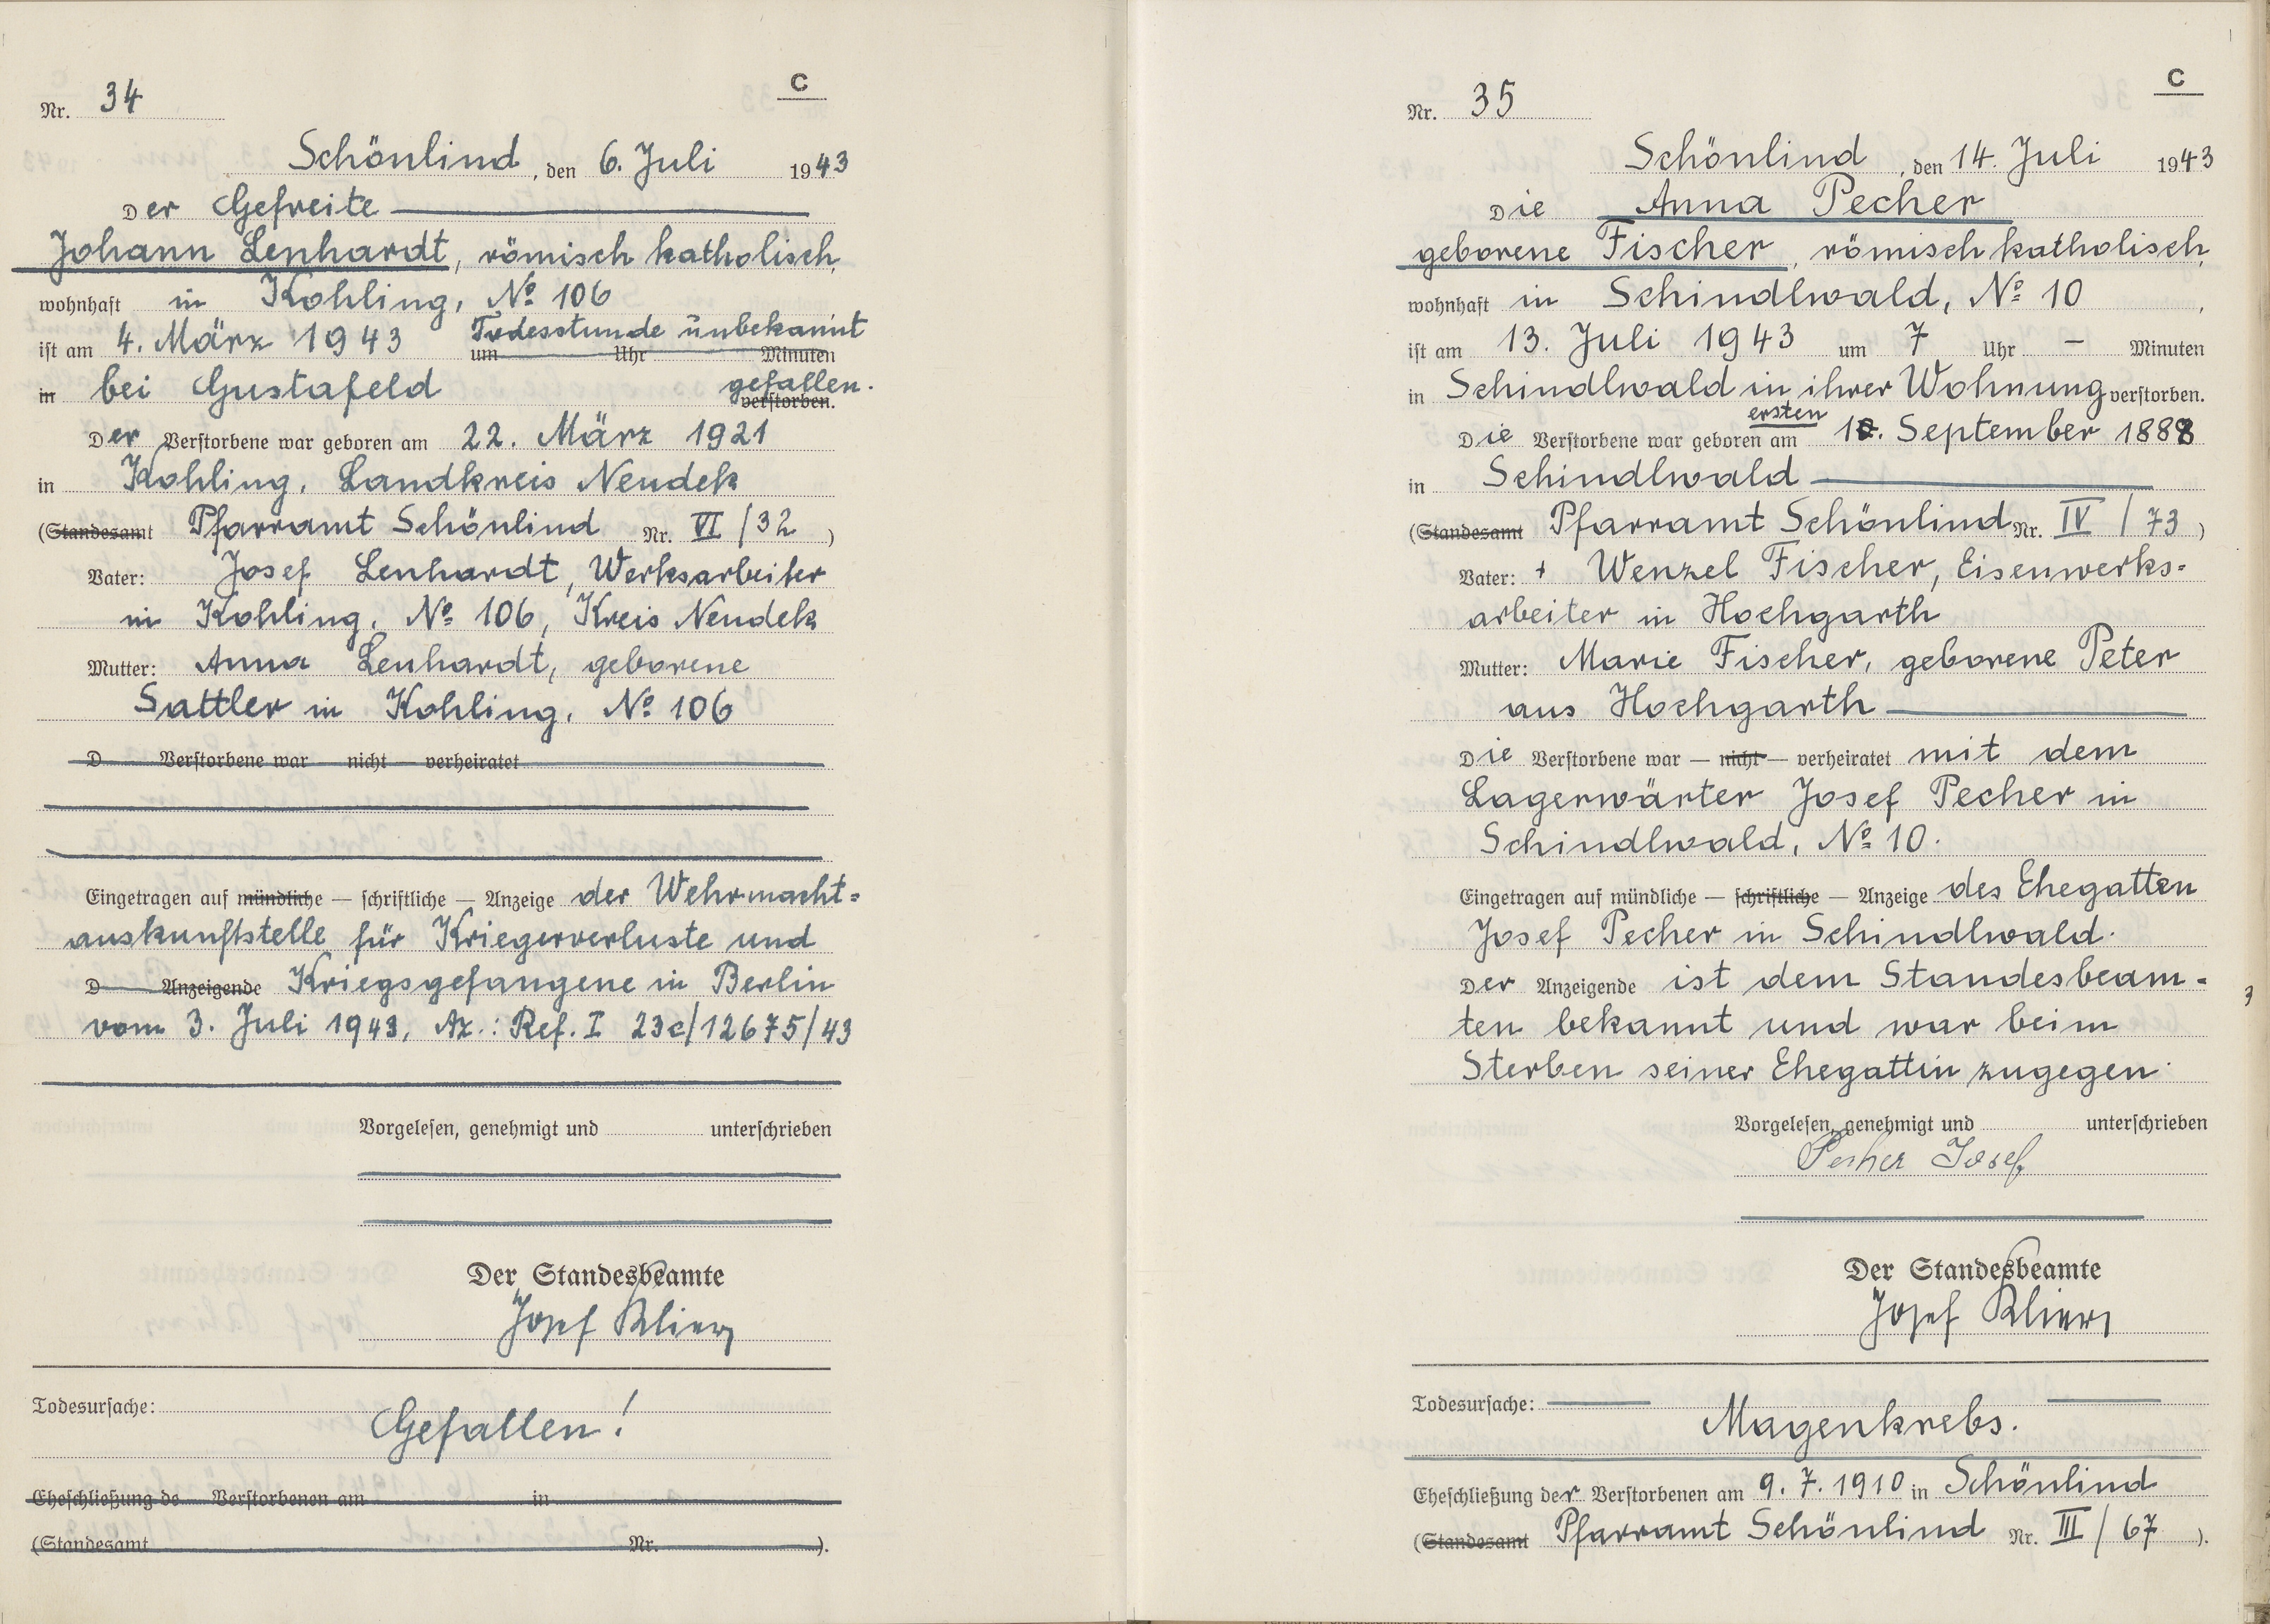 C
Nr. 34
Schönlind, den 6. Juli 1943
Der Gefreite
Johann Lenhardt, römisch katholisch,
wohnhaft in Kohling, No 106
Todesstunde unbekannt
ist am 4. März 1943 um Uhr Minuten
in bei Gustafeld gefallen.
verstorben.
Der Verstorbene war geboren am 22. März 1921
in Kohling, Landkreis Neudek
(Standesamt Pfarramt Schönlind Nr. VI/32)
Vater: Josef Lenhardt, Werksarbeiter
in Kohling, No 106, Kreis Neudek
Mutter: Anna Lenhardt, geborene
Sattler in Kohling, No 106
D Verstorbene war — nicht — verheiratet
Eingetragen auf mündliche — schriftliche — Anzeige der Wehrmacht=
auskunftstelle für Kriegerverluste und
D Anzeigende Kriegsgefangene in Berlin
vom 3. Juli 1943, Az.: Ref. I 23c/12675/43
Vorgelesen, genehmigt und unterschrieben
Der Standesbeamte
Josef Klier
Todesursache:
Gefallen!
Eheschließung de Verstorbenen am in
(Standesamt Nr. ).
C
Nr. 35
Schönlind, den 14. Juli 1943
Die Anna Pecher
geborene Fischer, römisch katholisch,
wohnhaft in Schindlwald, No 10,
ist am 13. Juli 1943 um 7 Uhr — Minuten
in Schindlwald in ihrer Wohnung verstorben.
ersten
Die Verstorbene war geboren am 1. September 1888
in Schindlwald
(Standesamt Pfarramt Schönlind Nr. IV/73)
Vater: + Wenzel Fischer, Eisenwerks=
arbeiter in Hochgarth
Mutter: Marie Fischer, geborene Peter
aus Hochgarth
Die Verstorbene war — nicht — verheiratet mit dem
Lagerwärter Josef Pecher in
Schindlwald, No 10.
Eingetragen auf mündliche — schriftliche — Anzeige des Ehegatten
Josef Pecher in Schindlwald.
Der Anzeigende ist dem Standesbeam=
ten bekannt und war beim
Sterben seiner Ehegattin zugegen.
Vorgelesen, genehmigt und unterschrieben
Pecher Josef
Der Standesbeamte
Josef Klier
Todesursache:
Magenkrebs.
Eheschließung der Verstorbenen am 9. 7. 1910 in Schönlind
(Standesamt Pfarramt Schönlind Nr. III/67).